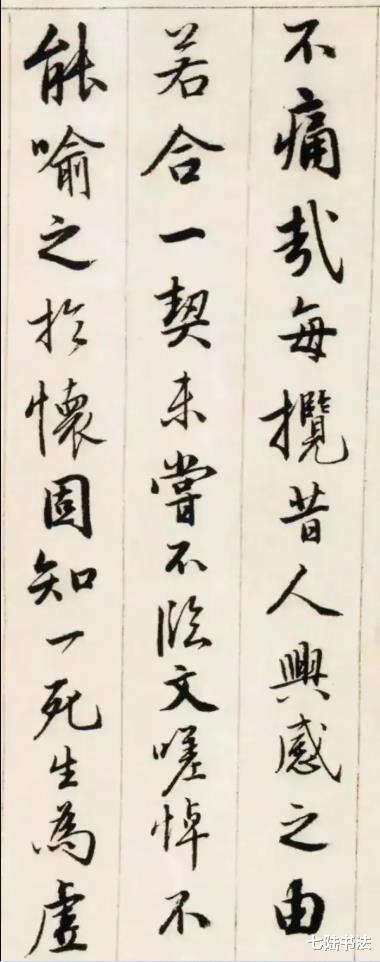 不痛哉每攬昔人興感之由
若合一契未嘗不臨文嗟悼不
能喻之於懷固知一死生為虛
七陆书法